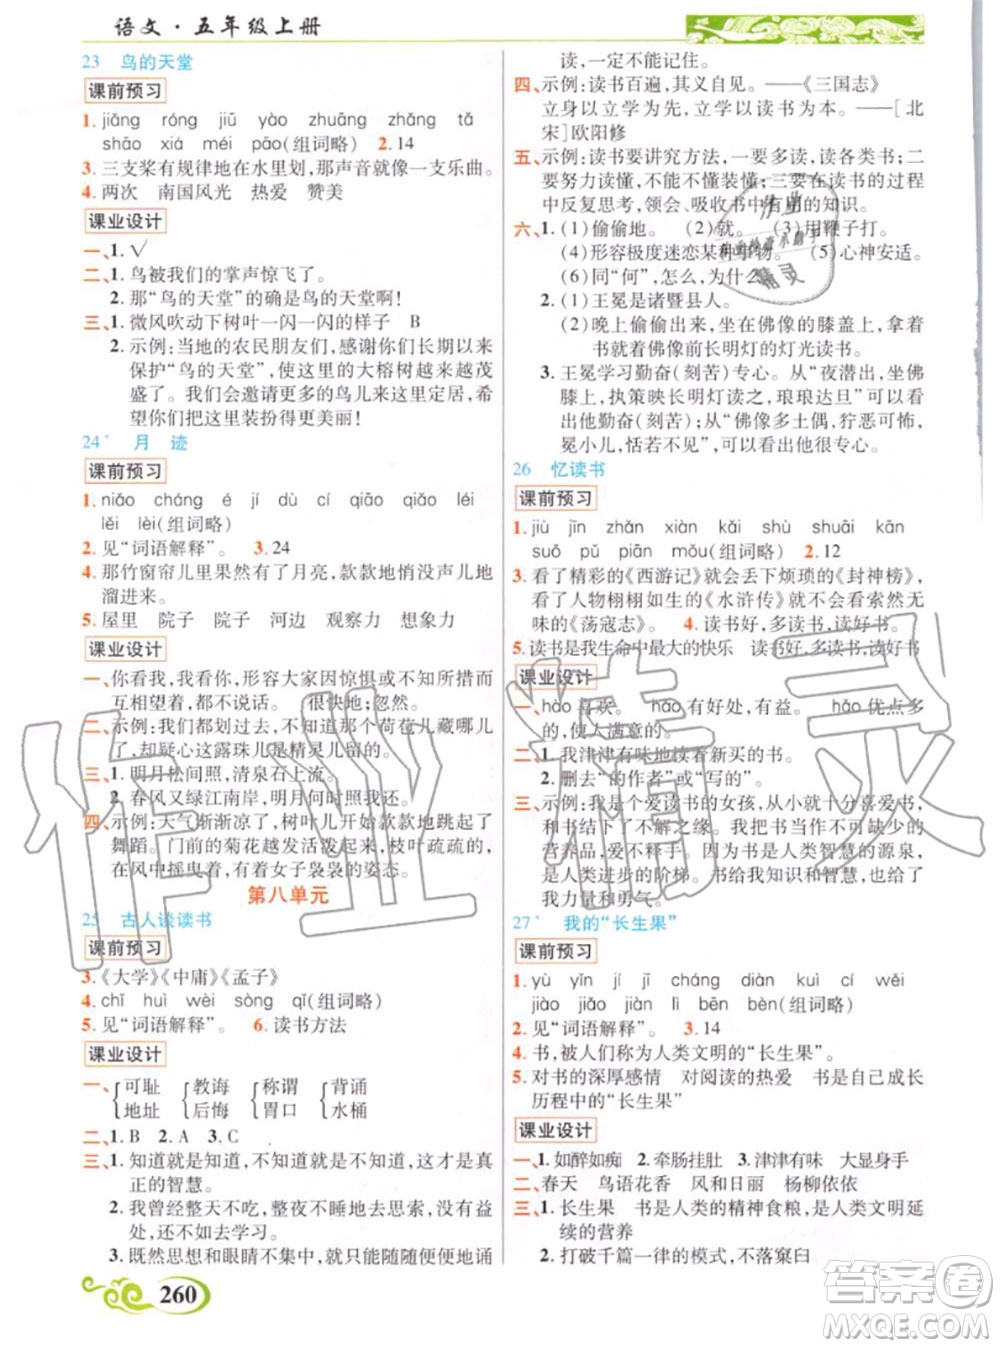 语文·五年级上册
23 鸟的天堂
课前预习
1. jiǎng róng jiū yào zhuāng zhǎng tǎ
shāo xiá méi pāo(组词略) 2. 14
3. 三支桨有规律地在水里划,那声音就像一支乐曲。
4. 两次 南国风光 热爱 赞美
课业设计
一、1. √
二、1. 鸟被我们的掌声惊飞了。
2. 那“鸟的天堂”的确是鸟的天堂啊!
三、1. 微风吹动下树叶一闪一闪的样子 B
2. 示例:当地的农民朋友们,感谢你们长期以来
保护“鸟的天堂”,使这里的大榕树越来越茂
盛了。我们会邀请更多的鸟儿来这里安家,希
望你们把这里装扮得更美丽!
24* 月 迹
课前预习
1. niǎo cháng é jí dù cí qiāo qiāo léi
lěi lèi(组词略)
2. 见“词语解释”。 3. 24
4. 那竹窗帘儿里果然有了月亮,款款地,悄没声儿地
溜进来。
5. 屋里 院子 院子 河边 观察力 想象力
课业设计
一、你看我,我看你,形容大家因惊惧或不满等而
互相望着,都不说话。 很快地;忽然。
二、示例:我们都划过去,不想那满天的荷苞儿藏起来
了,却疑心这露珠儿是精灵儿出没处。
三、1. 明月松间照,清泉石上流。
2. 春风又绿江南岸,明月何时照我还?
四、示例:天气渐渐凉了,树叶儿开始款款地跳起了
舞蹈。门前的菊花越发活泼起来,枝叶疏疏的,
在风中摇曳着,有着女子袅袅的姿态。
第八单元
25 古人谈读书
课前预习
3. 《大学》《中庸》《孟子》
4. chǐ huì wèi sòng qǐ(组词略)
5. 见“词语解释”。 6. 读书方法
课业设计
一、可耻 教诲 称谓 背诵
地址 后悔 胃口 水桶
二、1. B 2. A 3. C
三、1. 知道就是知道,不知道就是不知道,这才是真
正的智慧。
2. 我曾经整天不吃,整夜不睡而思考,没有什么益
处,还不如去学习。
3. 既然思想和眼睛不集中,就只能随随便便地诵
读,一定不能记住。
四、示例:读书百遍,其义自见。——《三国志》
立身以立学为先,立学以读书为本。——[北
宋]欧阳修
五、示例:读书要讲究方法,一要多读,读各类书;二
要努力读懂,不能不懂装懂;三要在读书的过程
中反复思考,领会、吸收书中有用的知识。
六、1. (1)偷偷地。 (2)就。 (3)用鞭子打。
(4)形容极度迷恋某种事物。 (5)心神安适。
(6)同“何”,怎么,为什么。
2. (1)王冕是诸暨县人。
(2)晚上偷偷出来,坐在佛像的膝盖上,就着
佛像前长明灯的灯光读书。
3. 王冕学习勤奋(刻苦)专心。从“夜潜出,坐佛
膝上,执策映长明灯读之,琅琅达旦”可以看
出他勤奋(刻苦);从“佛像多土偶,狞恶可怖,
冕小儿,恬若不见”可以看出他很专心。
26 忆读书
课前预习
1. jiù jīn zhǎn xiàn kǎi shù shuāi kān
suǒ pǔ piān mǒu(组词略) 2. 12
3. 看了精彩的《西游记》就会丢下烦琐的《封神榜》,
看了人物栩栩如生的《水浒传》就不会看索然无
味的《荡寇志》。 4. 读书好,多读书,读好书。
5. 读书是我生命中最大的快乐 读书好 多读书 读好书
课业设计
一、hào 喜欢。 hǎo 有好处,有益。 hǎo 优点多
的,使人满意的。
二、1. 我津津有味地读着新买的书。
2. 删去“的作者”或“写的”。
三、示例:我是个爱读书的女孩,从小就十分喜爱书,
和书结下了不解之缘。我把书当作不可缺少的
营养品,爱不释手。书是人类智慧的源泉,是人
类进步的阶梯。书给我以知识和智慧,更带给我
无限快乐。
27* 我的“长生果”
课前预习
1. yù yǐn jí jī cháng diàn kuì cí wěi
jiào jiǎo jiāo jiā lì bēn bèn(组词略)
2. 见“词语解释”。 3. 14
4. 书,被人们称为人类文明的“长生果”。
5. 对书的深厚感情 对阅读的热爱 书是“我”成长
历程中的“长生果”
课业设计
一、1. 如醉如痴 2. 牵肠挂肚 3. 津津有味 大显身手
二、春天 鸟语花香 风和日丽 杨柳依依
三、1. 长生果 书是人类的精神食粮,是人类文明延
续的营养
2. 打破千篇一律的模式,不落窠臼
260
作业精灵
答案圈
MXQE.COM